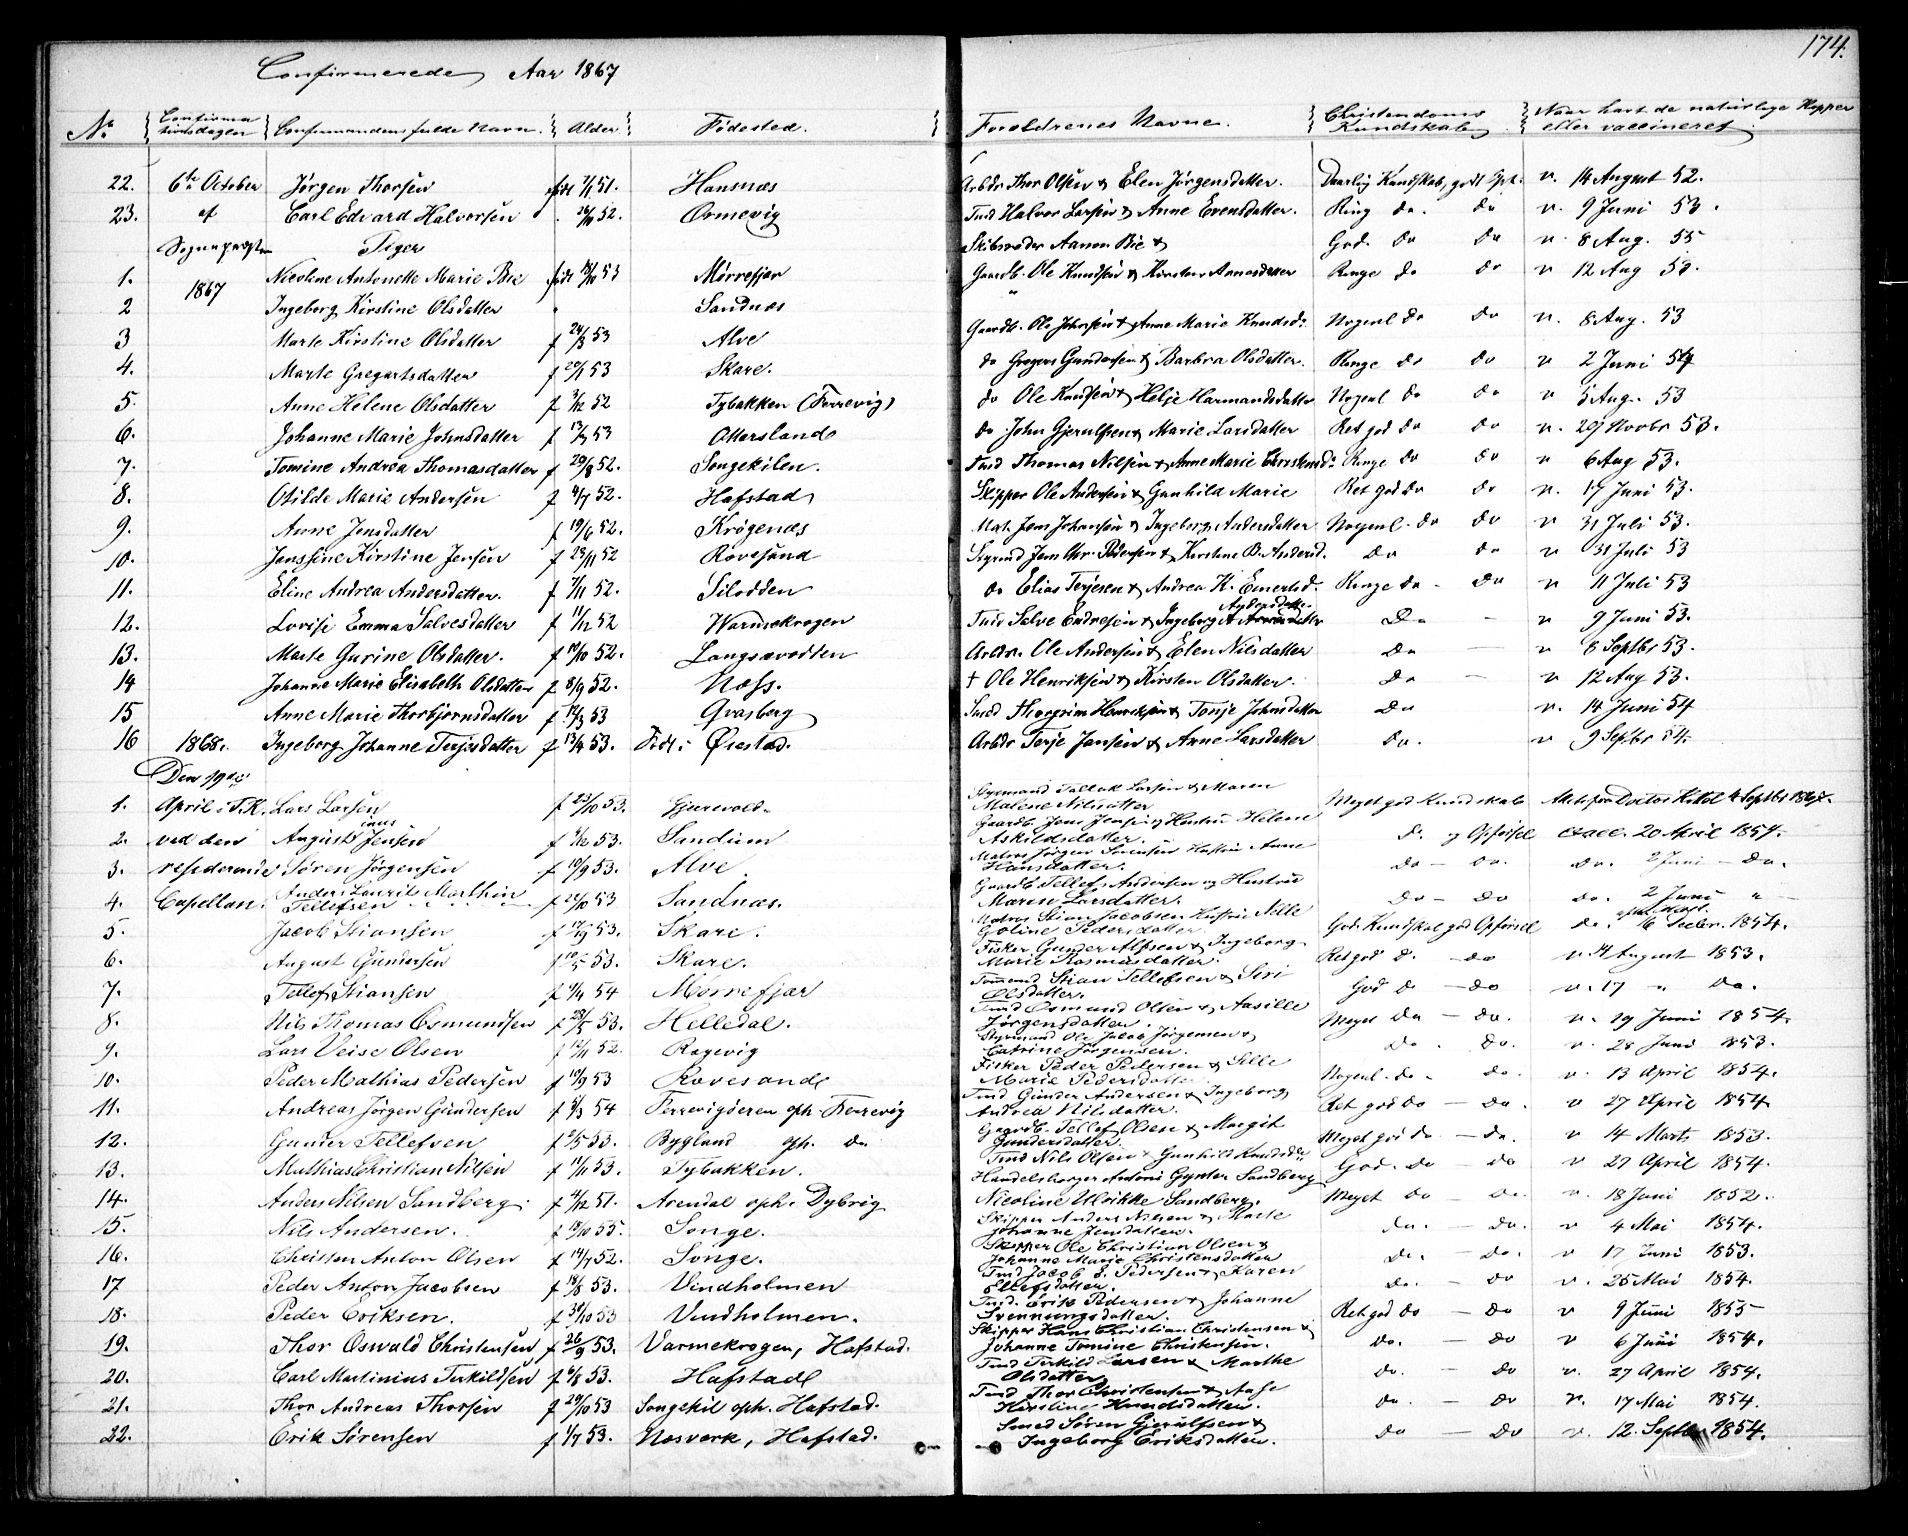 174.
Confirmerede Aar 1867
No. Confirmationsdagen Confirmandens fulde Navn. Alder. Fødested. Forældrenes Navne. Christendoms Kundskab Naar havt de naturlige Kopper eller vaccineret
22. 6te October Jørgen Thorsen født 7/1 51. Hansnæs Arbdr Thor Olsen & Elen Jørgensdatter. Daarlig Kundskab, godt v. 14 August 52.
23. af Carl Edvard Halvorsen 52. Ormevig Tmd Halvor Larsen & Anne Evensdatter. Ring do. do v. 9 Juni 53.
Sognepræsten Piger Skibsreder Aanon Bie & God. do do v. 8 Aug. 55
1. 1867 Nicoline Antonette Marie Bie født 53 Mørrefjær Gaardb. Ole Knudsen & Kirsten Ringe do do v 12 Aug
2 Ingeborg Kirstine Olsdatter Sandnæs
3 Marte Kirstine Olsdatter f 24/3 53 Alve Gaardb. Ole Johnsen & Anne Marie Knudsd: Nogenl do do v. 8 Aug. 53
4. Marte Gregertsdatter f 53 Skare. do Gregers Gundersen & Barbra Olsdatter. Ringe do do v 2 Juni 54
5. Anne Helene Olsdatter f 3/12 52 Tybakken (Færrevig) do Ole Knudsen & Helje Harmandsdatter Nogenl do do v 5 Aug. 53
6. Johanne Marie Johnsdatter f 13/3 53 Ottersland do John Gjerulfsen & Marie Larsdatter Ret god do do v. 29 Novbr 53.
7. Tomine Andrea Thomasdatter f 29/8 52. Songekilen. Tmd Thomas Nilsen & Anne Marie Ringe do do v 6 Aug 53.
8. Otilde Marie Andersen f 4/7 52. Hafstad Skipper Ole Andersen & Gunhild Marie Ret god do do v. 17 Juni 53.
9. Anne Jensdatter f 19/6 52. Krøgenæs Mat. Jens Johansen & Ingeborg Andersdatter Nogenl. do do v 31 Juli 53.
10. Janssine Kirstine Jensen f 23/11 52 Rovesund Jens Chr. Pedersen & Kirstine B. Andersd. do do v 31 Juli 53
11. Eline Andrea Andersdatter. f 7/11 52. Silodden do Elias Terjesen & Andrea K. Ringe do. do v 11 Juli 53
12. Lovise Emma Salvesdatter f 11/12 52 Warmekrogen Tmd Salve Endresen & Ingeborg Andersdatter Do – v 9 Juni 53.
13. Marte Gurine Olsdatter. f 52. Langsævodden Arbdr. Ole Andersen & Elen Nilsdatter do – v 8 Septbr 53.
14 Johanne Marie Elisabeth Olsdatter f 8/9 52. Næss. † Ole Henriksen & Kirsten Olsdatter. do – v 12 Aug 53.
15 Anne Marie Thorbjørnsdatter f 12/3 53 Gvasberg Smed Henriksen & Tonje Johnsdatter do v. 14 Juni 54
16 1868. Ingeborg Johanne Terjesdatter f 13/4 53. Født: Øiestad. Arbdr Terje Jensen & Anne Larsdatter do. v 9 Septbr 54.
Den 19de Styrmand Tallak Larsen & Maren
1. April. T.K. Lars Larsen f 23/10 53. Gjerevold. Malene Nilsdatter Meget god Kundskab Attest fra Doctor 4 Septbr 1867.
Gaardb. Jens Jensen og Hustru Helene
2. ved den Augustinius Jensen f 9/12 53. Sandum Askildsdatter. do. og Opførsel vacc. 20 April 1854.
Matros Jørgen Sørensen Hustru Anne
3. residerende Søren Jørgensen f 10/9 53. Alve. Hansdatter. do – do. do. 2 Juni – do.
Gaardb. Tellef Andersen og Hustru
4. Capellan. Anders Laurits Mathin Tellefsen f 53 Sandnæs. Maren Larsdatter. do – do do. 2 Juni "
Matros Stian Jacobsen Hustru Nille
5. Jacob Stiansen f 53. Skare. Goline Pedersdatter God. Kundskab god Opførsel do. 16 Decbr. 1854.
Fisker Gunder Alfsen & Ingeborg
6. August Gundersen f 53. Skare. Marie Rasmusdatter. Ret god do – do v. 14 August 1853.
Tømmd Stian Tellefsen & Siri
7. Tellef Stiansen f 54 Mørrefjær Olsdatter. God do – do v. 17 " do.
Tmd Osmund Olsen & Aasille
8. Nils Thomas Osmundsen f 28/5 53. Helledal. Jørgensdatter. Meget do – do. v. 19 Juni 1854.
Styrmand Ole Jacob Jørgensen &
9. Lars Veise Olsen f 52. Ragevig Catrine Jørgensen. do. do. v. 28 Juni 1853.
Fisker Peder Pedersen & Sille
10. Peder Mathias Pedersen f 10/9 53 Rovesande Marie Pedersdatter Nogenl. do. do. v. 13 April 1854.
Tmd Gunder Andersen & Ingeborg
11. Andreas Jørgen Gundersen f 8/3 54 Færrevigøeren oph. Færrevig Andrea Nilsdatter. Ret god do – do. v 27 April 1854
Gaardb. Tellef Olsen & Margit
12. Gunder Tellefsen f 2/5 53. Bygland oph. do Gundersdatter. Meget god do – do. v 14 Marts 1853.
13. Mathias Christian Nilsen f 11/11 53. Tybakken. Tmd Nils Olsen & Gunhild God. do do v 27 April 1854.
Handelsborger Antoni Gynter Sandberg
14. Anders Nilsen Sandberg. f 51. Arendal oph. Dybvig Nicoline Ulrikke Sandberg. Meget do – do. v. 18 Juni 1852.
Skipper Anders Nilsen & Marte
15. Nils Andersen. f 55. Songe. Johanne Jensdatter. do. – do. v 4 Mai 1854.
Skipper Ole Christian Olsen &
16. Christen Anton Olsen f 14/7 52. Songe. Johanne Marie Christensdatter do. do. v 17 Juni 1853.
Tmd Jacob E. Pedersen & Karen
17 Peder Anton Jacobsen f 18/8 53. Vindholmen Ellefsdatter. do. – do v. 25 Mai 1854.
Tmd. Erik Pedersen & Johanne
18. Peder Eriksen. f 30/10 53 Vindholmen. Svenningsdatter. Ret god do – do v 9 Juni 1855
Skipper Hans Christian Christensen &
19. Thor Oswald Christensen f 26/9 53. Varmekrogen, Hafstad. Johanne Tomine Christensen. do. – do v 6 Juni 1854.
Tmd Terkild Larsen & Marthe
20. Carl Martinius Terkildsen f 6/8 53. Hafstad Olsdatter do. do v. 27 April 1854.
Tmd Thor Christensen & Aase
21. Thor Andreas Thorsen f 29/10 53 Songekil oph. Hafstad. Kirstine Knudsdatter. do. – do v. 17 Mai 1854.
Smed Søren Gjerulfsen &
22. Erik Sørensen f 1/7 53. Næsverk, Hafstad. Ingeborg Eriksdatter. do – do v. 12. Septbr 1854.